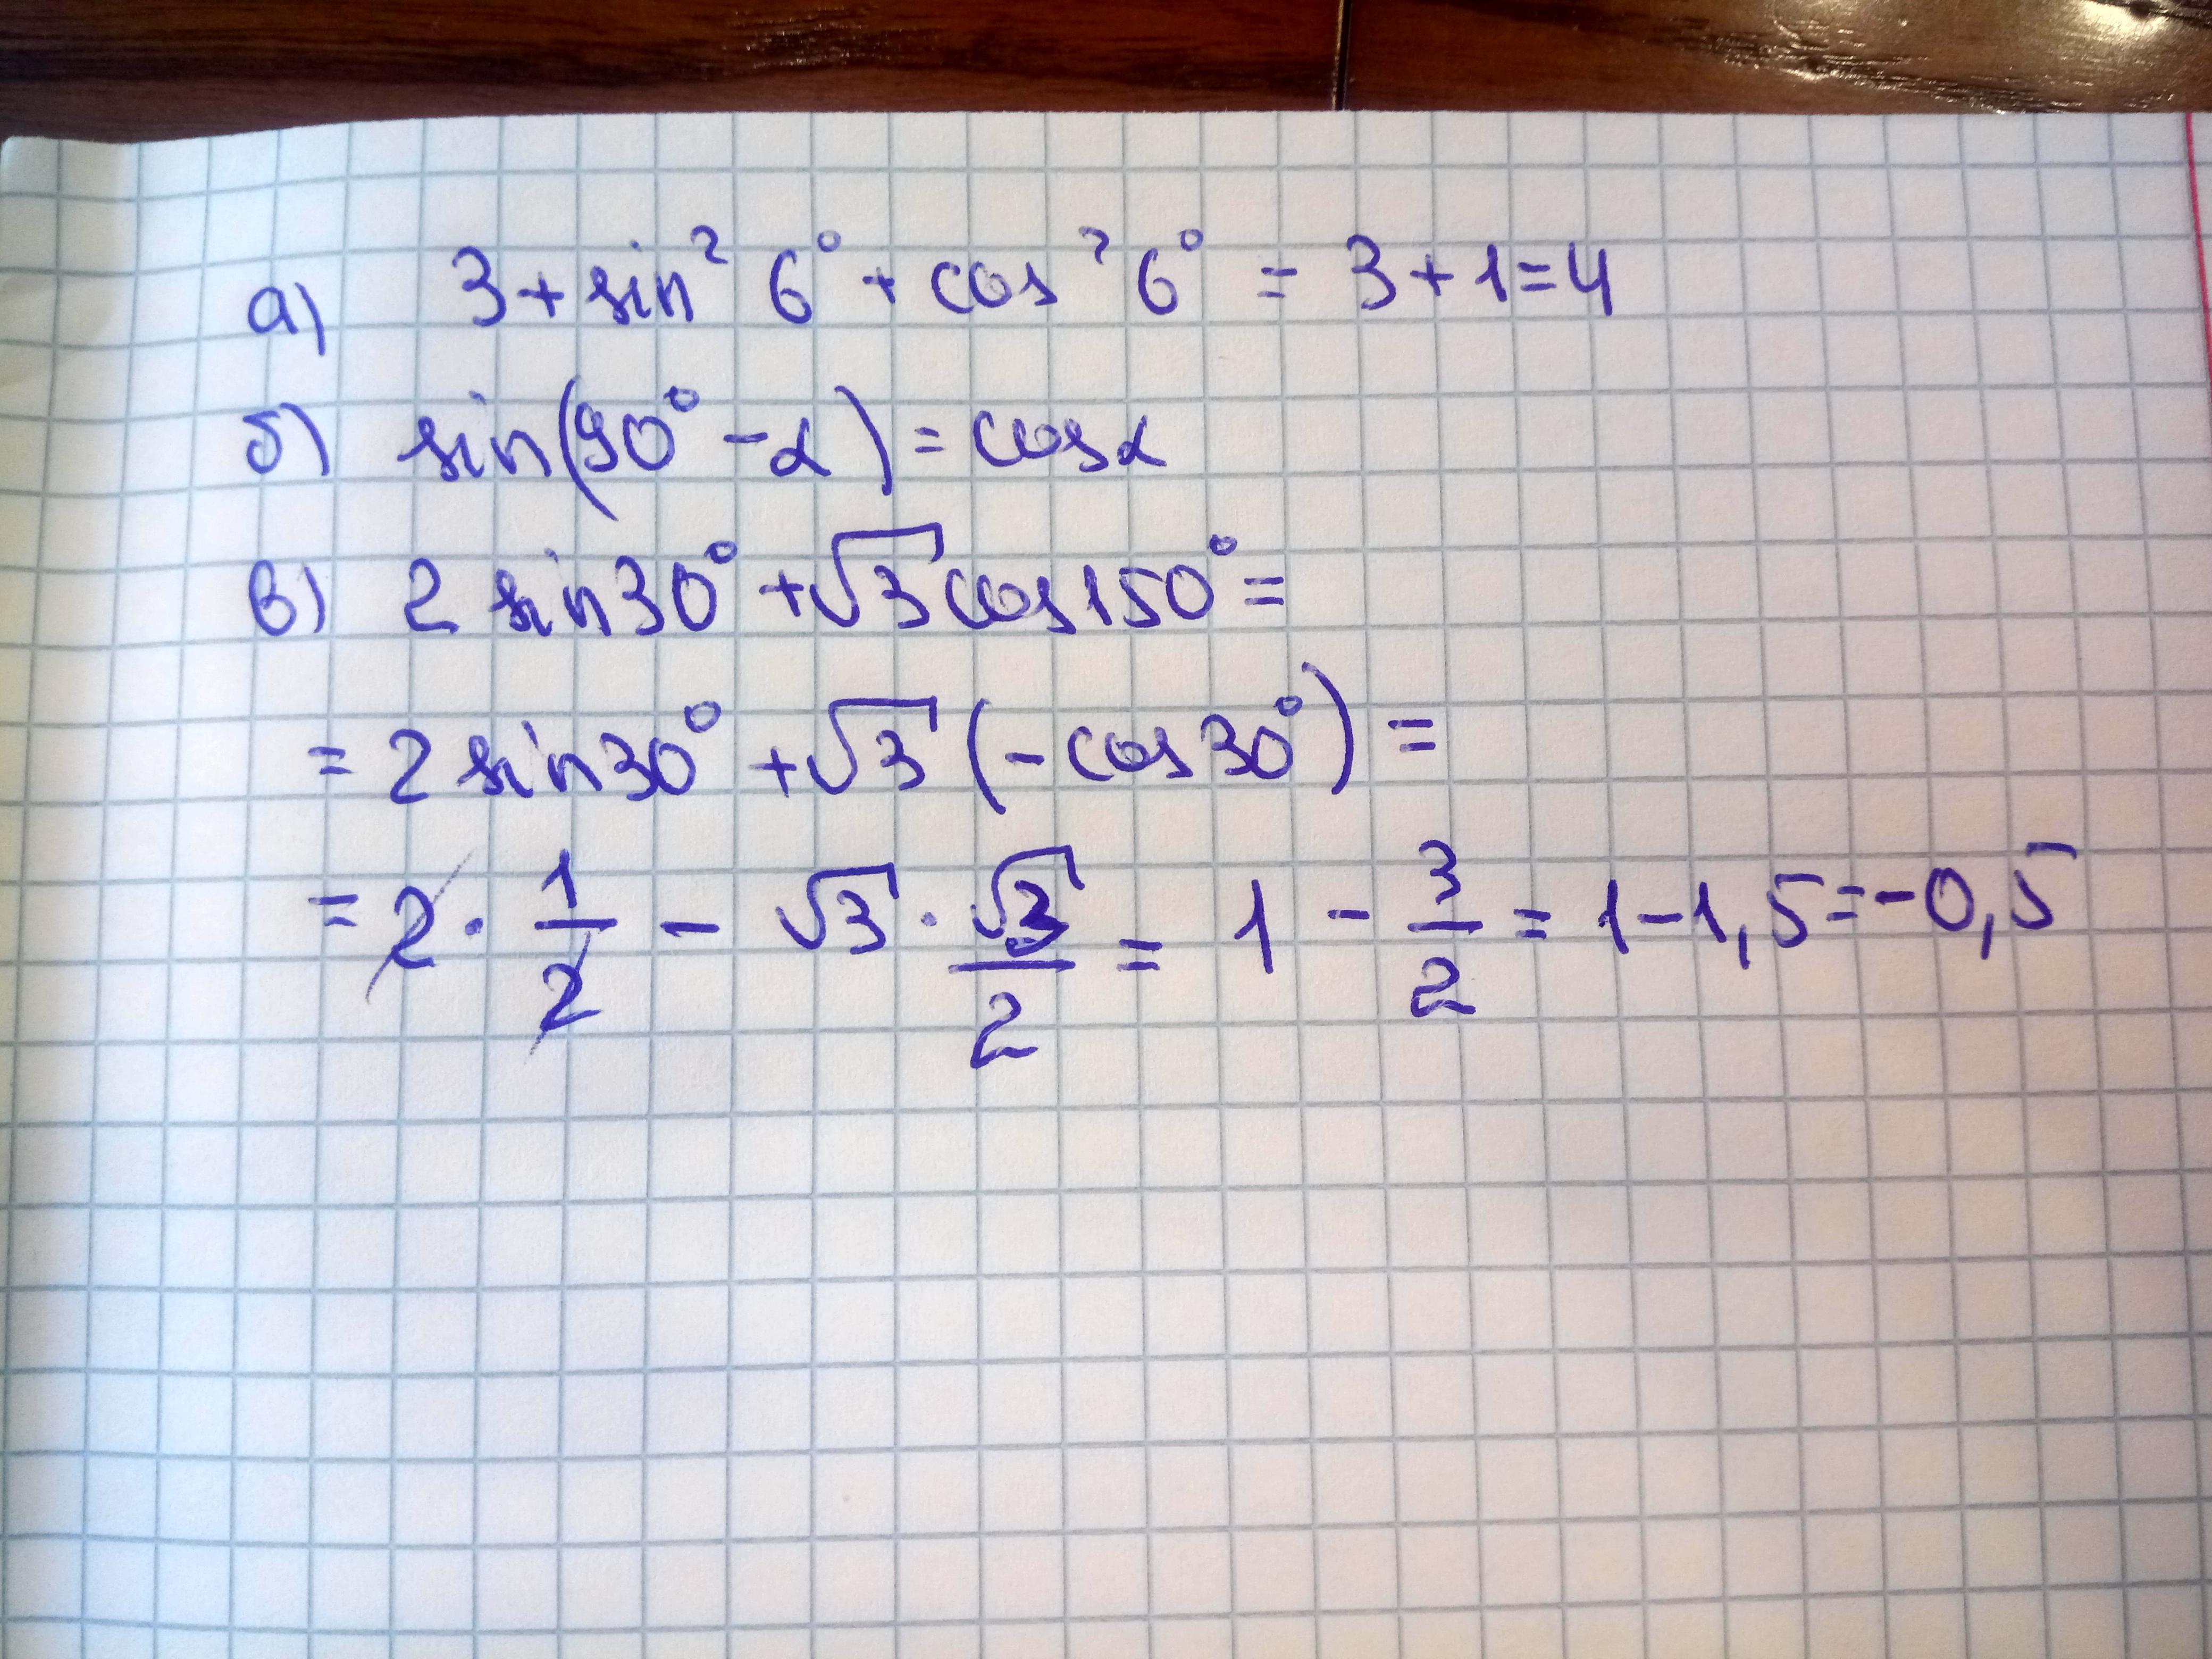 а) 3 + sin² 6° + cos² 6° = 3 + 1 = 4
б) sin(90° - α) = cos α
в) 2 sin 30° + √3 cos 150° =
= 2 sin 30° + √3 (- cos 30°) =
= 2 · 1/2 - √3 · √3/2 = 1 - 3/2 = 1 - 1,5 = -0,5